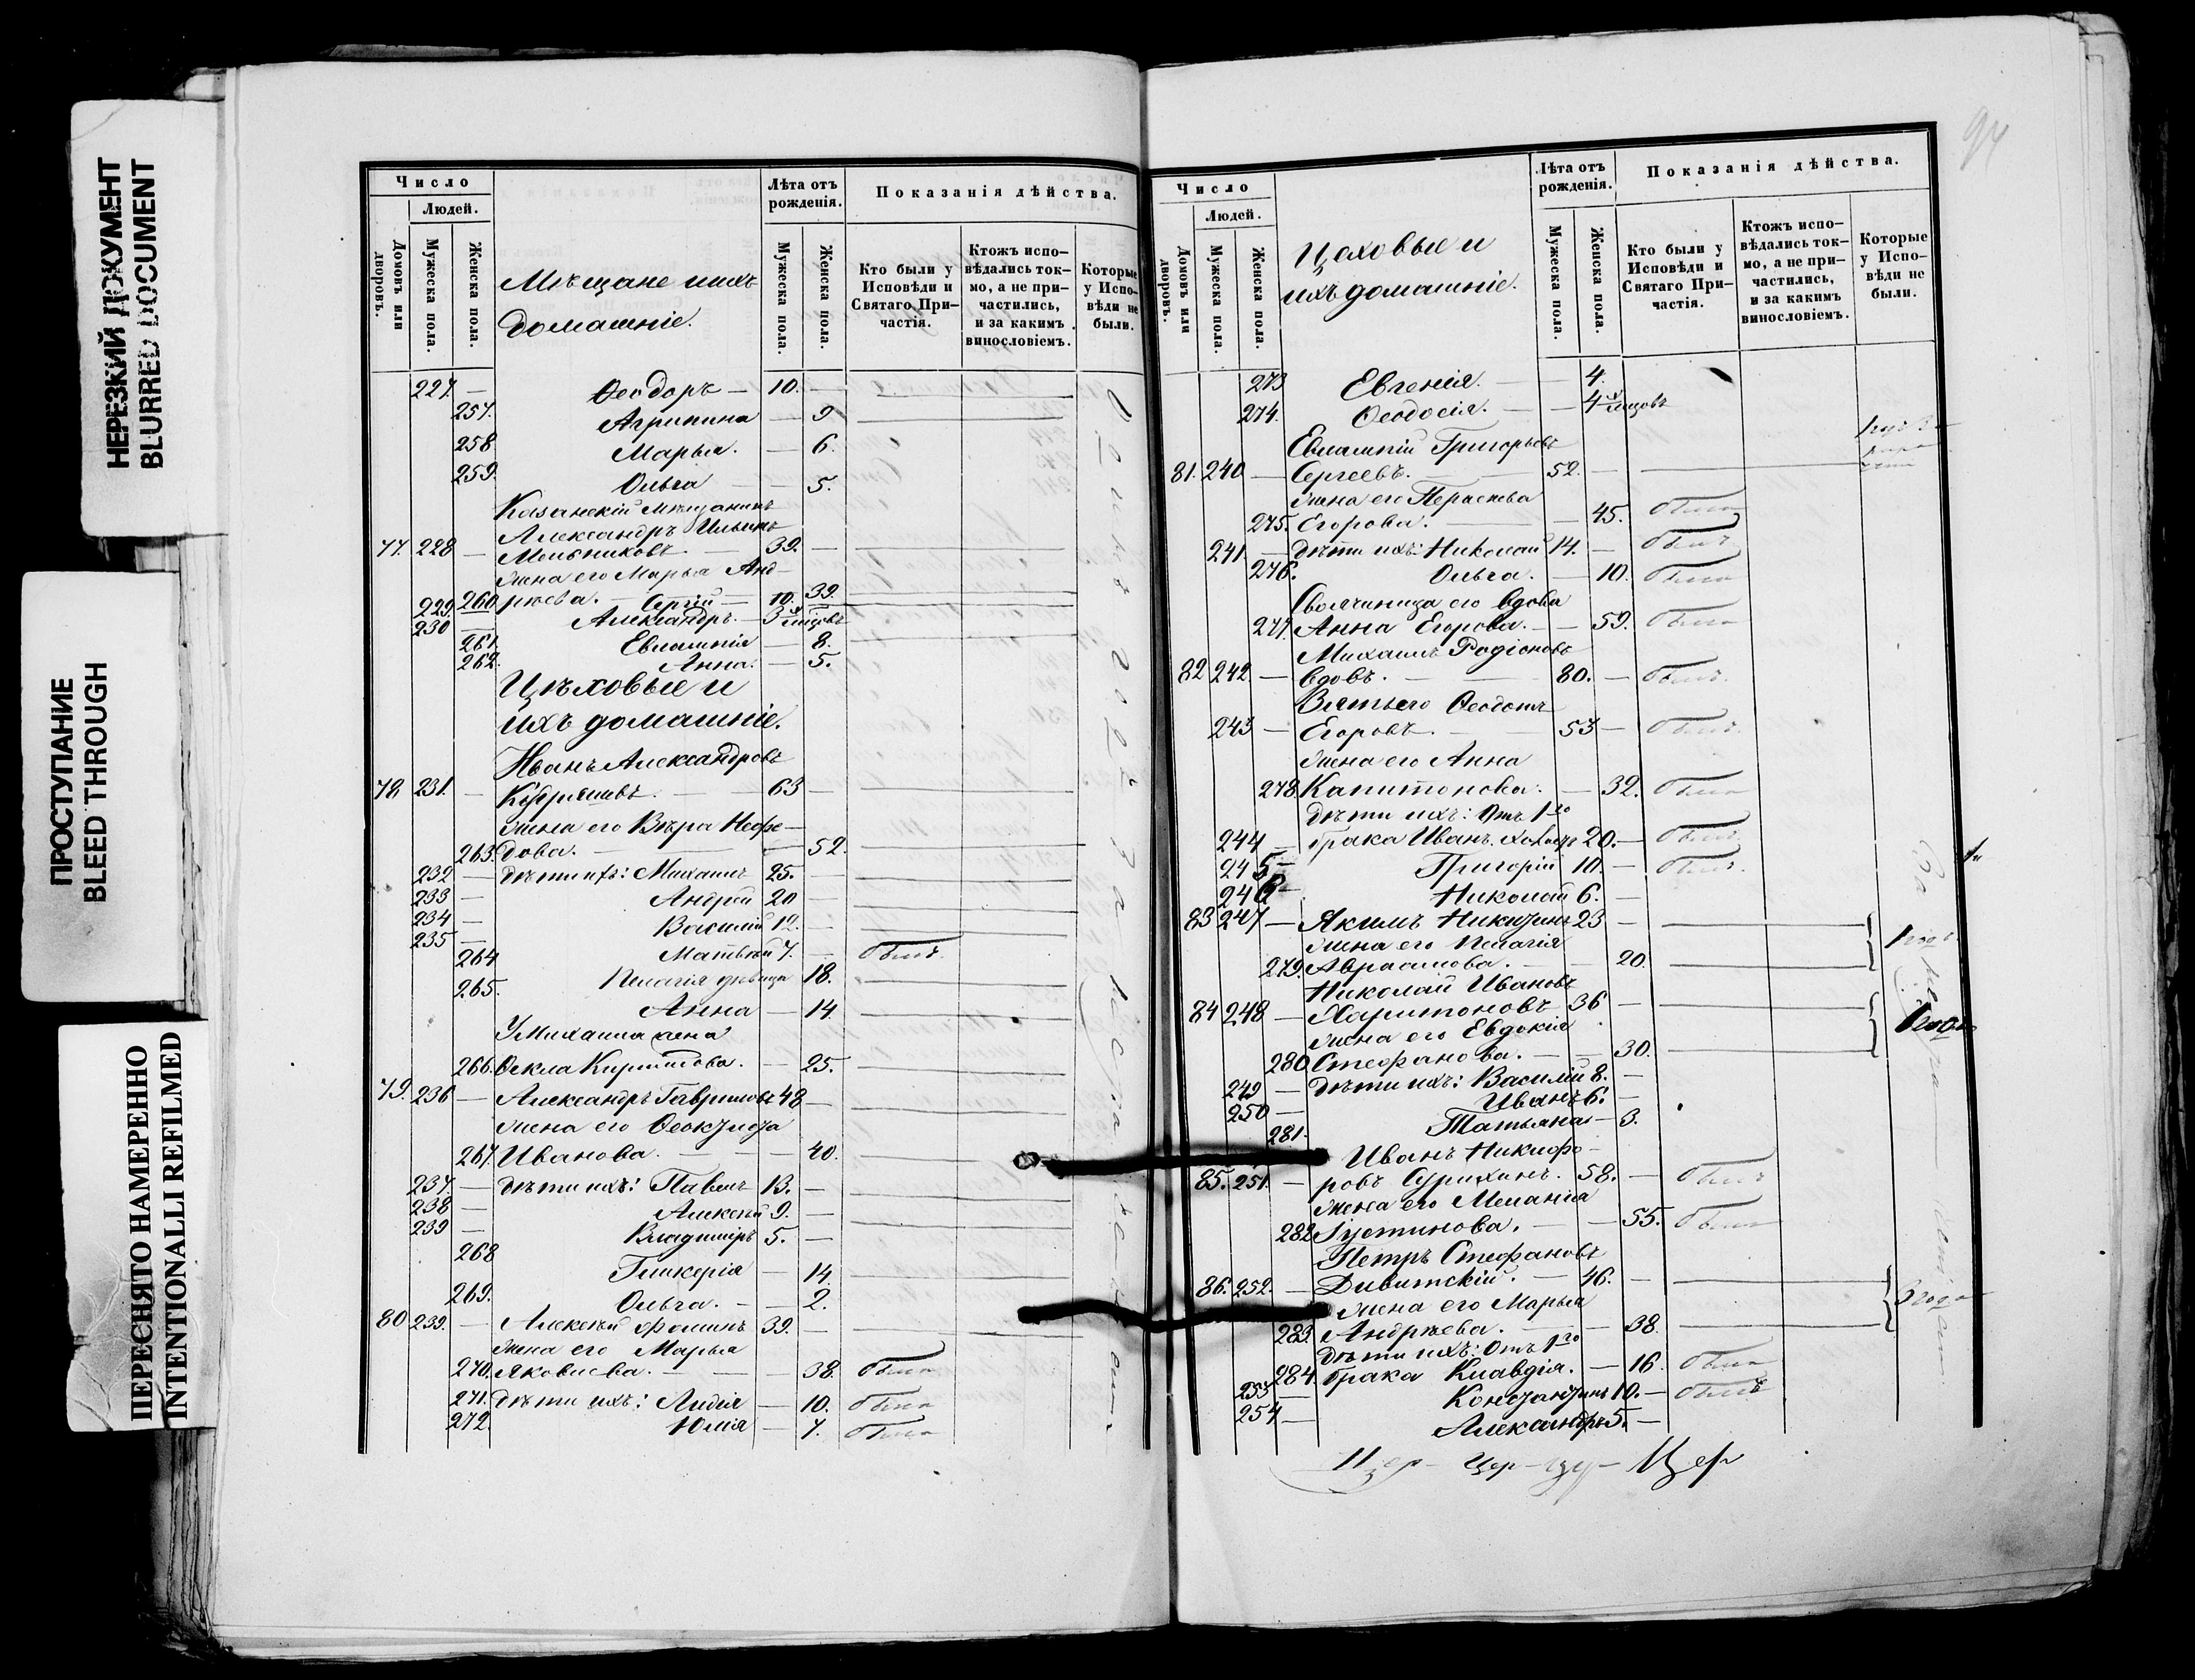 НЕРЕЗКИЙ ДОКУМЕНТ
BLURRED DOCUMENT
ПРОСТУПАНИЕ
BLEED THROUGH
ПЕРЕСНЯТО НАМЕРЕННО
INTENTIONALLI REFILMED
Число
Людей.
Домовъ или дворовъ.
Мужеска пола.
Женска пола.
Мѣщане и ихъ
домашніе.
Лѣта отъ рожденія.
Мужеска пола.
Женска пола.
Показанія дѣйства.
Кто были у Исповѣди и Святаго Причастія.
Ктожъ исповѣдались токмо, а не причастились, и за какимъ винословіемъ.
Которые у Исповѣди не были.
227. — Ѳеодоръ — 10. —
257. Агрипина — 9
258 Марья. — 6.
259. Ольга — 5.
Казанскій мѣщанинъ
Александръ Ильинъ
77. 228 — Мельниковъ. — 39. —
Жена его Марья Анд-
260 рѣева. — 39.
229. Сергій — 10.
230 — Александръ. — 3 мѣсцовъ
261. Евлампія — 8.
262. Анна. — 5.
Цѣховые и
ихъ домашніе.
Иванъ Александровъ
78. 231. — Кудряшевъ. — 63 —
Жена его Вѣра Нефе-
263. дова. — 52.
232 — Дѣти ихъ: Михаилъ 25. —
233 — Андрей 20 —
234 — Василій 12. —
235 — Матвѣй 7. — былъ.
264 Пелагія дѣвица 18.
265. Анна — 14.
У Михаила жена
266. Ѳекла Кириллова. — 25.
79. 236 — Александръ Гавриловъ 48 —
Жена его Ѳеоктиста
267. Иванова. — 40.
237. — Дѣти ихъ: Павелъ 13. —
238 — Алексѣй 9. —
239 — Владиміръ 5. —
268 Гликерія — 14.
269. Ольга. — 2.
80 239. — Алексѣй Фоминъ 39. —
Жена его Марья
270. Яковлева. — 38. была
271. Дѣти ихъ: Лидія — 10. была
272. Юлія — 7. была
94
Число
Людей.
Домовъ или дворовъ.
Мужеска пола.
Женска пола.
Цеховые и
ихъ домашніе.
Лѣта отъ рожденія.
Мужеска пола.
Женска пола.
Показанія дѣйства.
Кто были у Исповѣди и Святаго Причастія.
Ктожъ исповѣдались токмо, а не причастились, и за какимъ винословіемъ.
Которые у Исповѣди не были.
273 Евгенія. — 4.
274. Ѳеодосія. — 4 мѣсцовъ
Евлампій Григорьевъ
81. 240 — Сергеевъ. — 52. —
Жена его Параскева
275. Егорова. — 45. была
241. — Дѣти ихъ: Николай 14. — былъ
276. Ольга. — 10. была
Своячиница его вдова
277. Анна Егорова. — 59. была
Михаилъ Родіоновъ
82 242. — вдовъ. — 80. — былъ.
Зять его Ѳеодотъ
243 — Егоровъ. — 53 — былъ.
Жена его Анна
278. Капитонова. — 32. была
Дѣти ихъ: Отъ 1го
244 — брака Иванъ холостъ 20. — былъ.
245 — Григорій 10. — былъ.
246 — Николай 6. —
83 247 — Якимъ Никитинъ 23 — 1 годъ
Жена его Пелагія
279. Авраамова. — 20.
Николай Ивановъ
84 248 — Харитоновъ. 36 —
Жена его Евдокія
280 Стефанова. — 30.
249 — Дѣти ихъ: Василій 8. —
250 — Иванъ 6. —
281. Татьяна — 3.
Иванъ Никифо-
85. 251. — ровъ Сурихинъ. 58. — былъ
Жена его Меланія
282 Іустинова. — 55. была
Петръ Стефановъ
86. 252. — Дивитскій. — 46. — 3 года
Жена его Марья
283. Андрѣева. — 38.
Дѣти ихъ: Отъ 1го
284. брака Клавдія. — 16. была
253 — Константинъ 10. — былъ
254 — Александръ 5. —
Цер- Цер- Цер